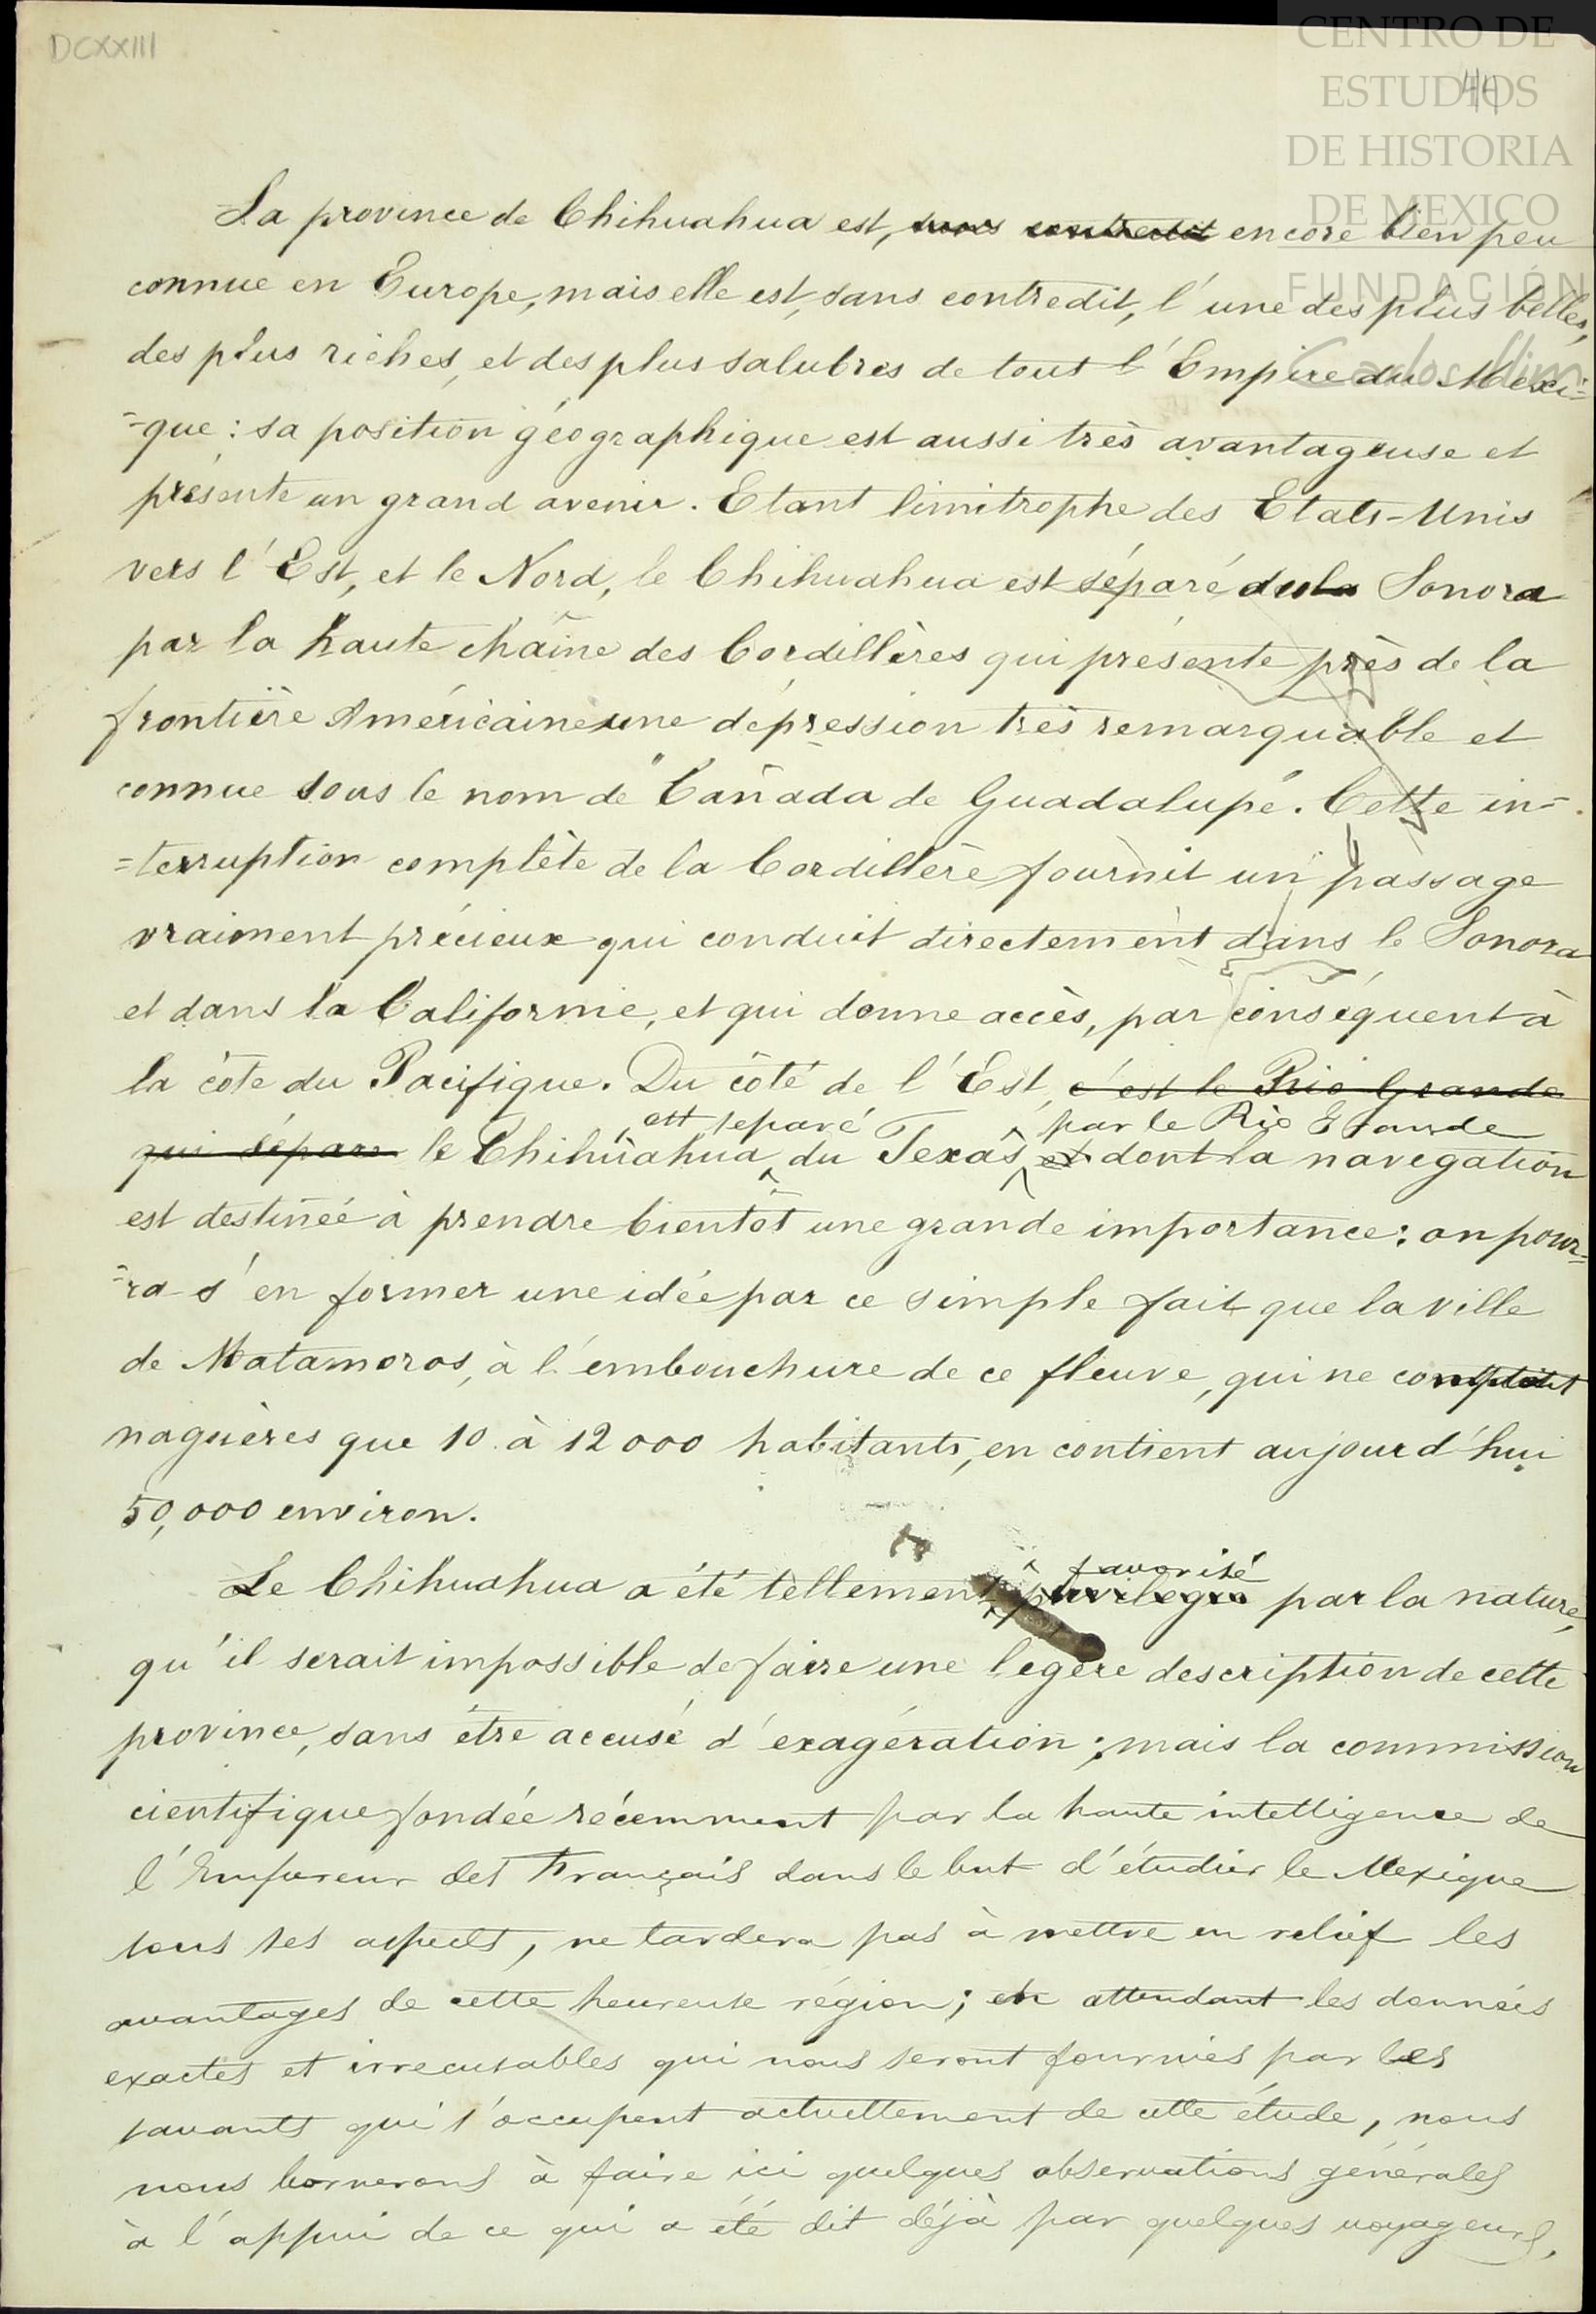 DCXXIII
44
CENTRO DE
ESTUDIOS
DE HISTORIA
DE MEXICO
FUNDACIÓN
Carlos Slim
La province de Chihuahua est, sans contredit encore bien peu
connue en Europe, mais elle est, sans contredit, l'une des plus belles,
des plus riches, et des plus salubres de tout l'Empire du Mexi=
=que : sa position géographique est aussi très avantageuse et
présente un grand avenir. Etant limitrophe des Etats-Unis
vers l'Est, et le Nord, le Chihuahua est séparé du la Sonora
par la haute chaîne des Cordillères qui présente près de la
frontière Américaine une dépression très remarquable et
connue sous le nom de "Cañada de Guadalupe". Cette in=
=terruption complète de la Cordillère fournit un passage
vraiment précieux qui conduit directement dans le Sonora
et dans la Californie, et qui donne accès, par conséquent à
la côte du Pacifique. Du côté de l'Est, c'est le Rio Grande
est separé par le Rio Grande
qui sépare le Chihuahua du Texas et dont la navegation
est destinée à prendre bientôt une grande importance : on pour=
=ra s'en former une idée par ce simple fait que la ville
de Matamoros, à l'embouchure de ce fleuve, qui ne comptait
naguères que 10 à 12 000 habitants, en contient aujourd'hui
50,000 environ.
favorisé
Le Chihuahua a été tellement privilegié par la nature,
qu'il serait impossible de faire une legère description de cette
province, sans être accusé d'exagération ; mais la commission
cientifique fondée récemment par la haute intelligence de
l'Empereur des Français dans le but d'étudier le Mexique
sous ses aspects, ne tardera pas à mettre en relief les
avantages de cette heureuse région ; en attendant les données
exactes et irrecusables qui nous seront fournies par les
savants qui s'occupent actuellement de cette étude, nous
nous bornerons à faire ici quelques observations générales
à l'appui de ce qui a été dit déjà par quelques voyageurs.